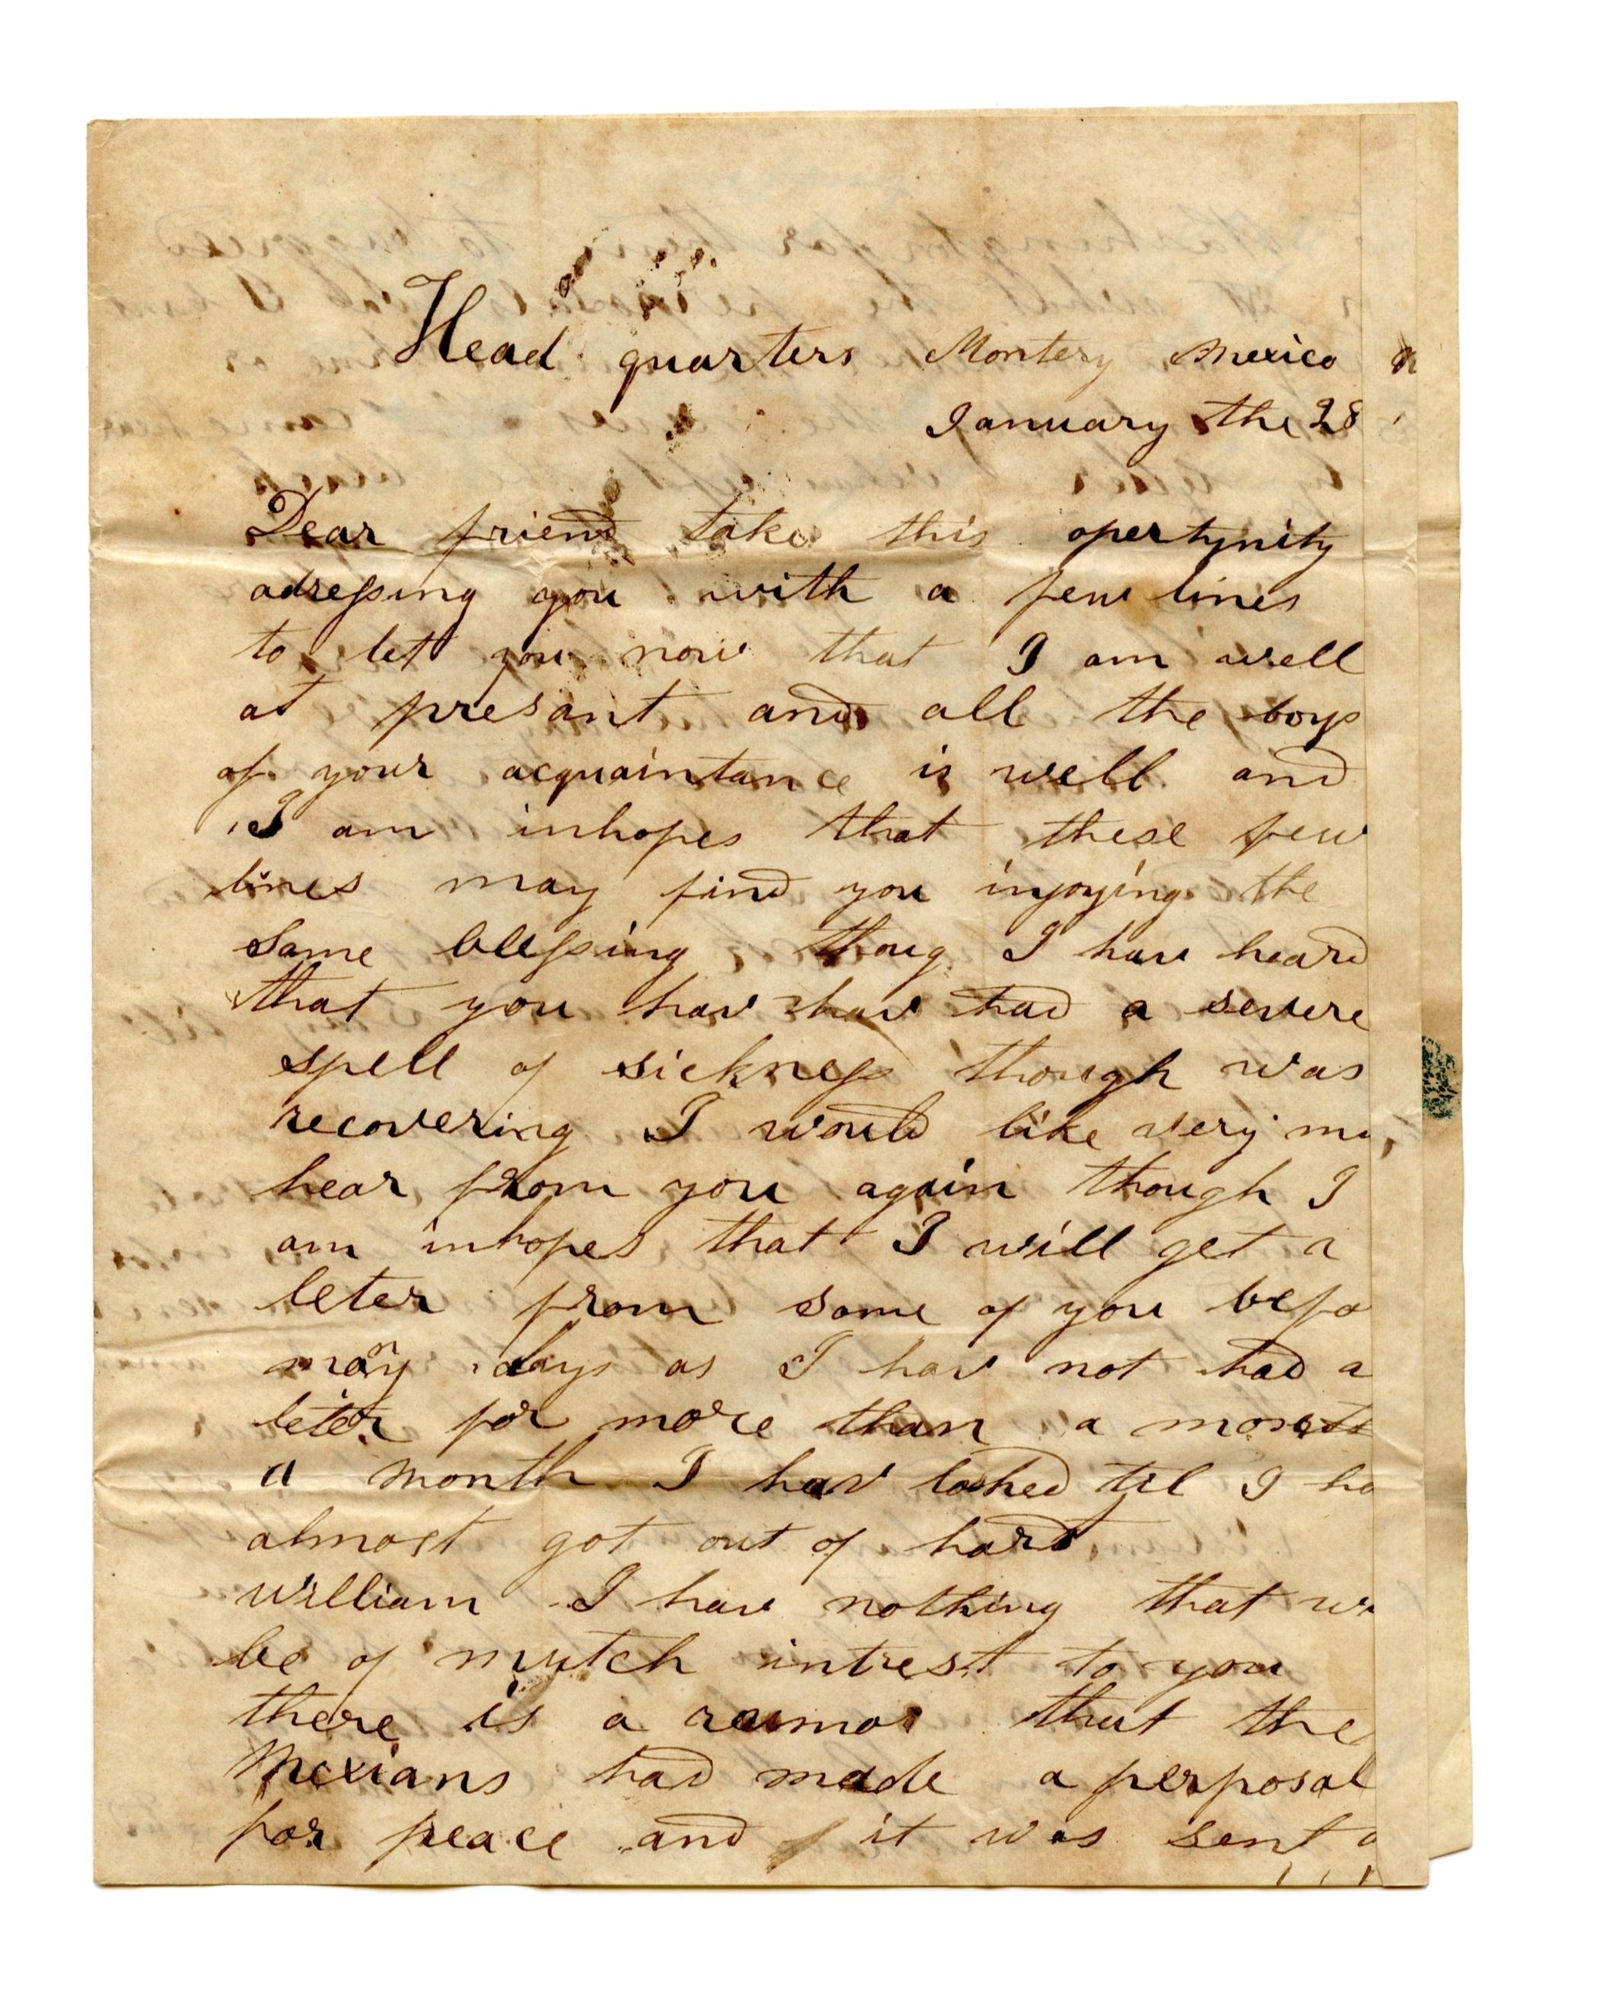 Head quarters Montery Mexico
January the 28
Dear friend take this opertynity
adressing you with a few lines
to let you now that I am well
at presant and all the boys
of your acquaintance is well and
I am inhopes that these few
lines may find you injoying the
same blessing thoug I hav heard
that you hav hav had a severe
spell of sickness though was
recovering I would like very mu
hear from you again though I
am inhopes that I will get a
leter from some of you befo
many days as I hav not had a
leter for more than a month
a month I hav looked til I ha
almost got out of hart
william I hav nothing that w
be of mutch intrest to you
there is a rumor that the
Mexians had made a perposal
for peace and it was sent